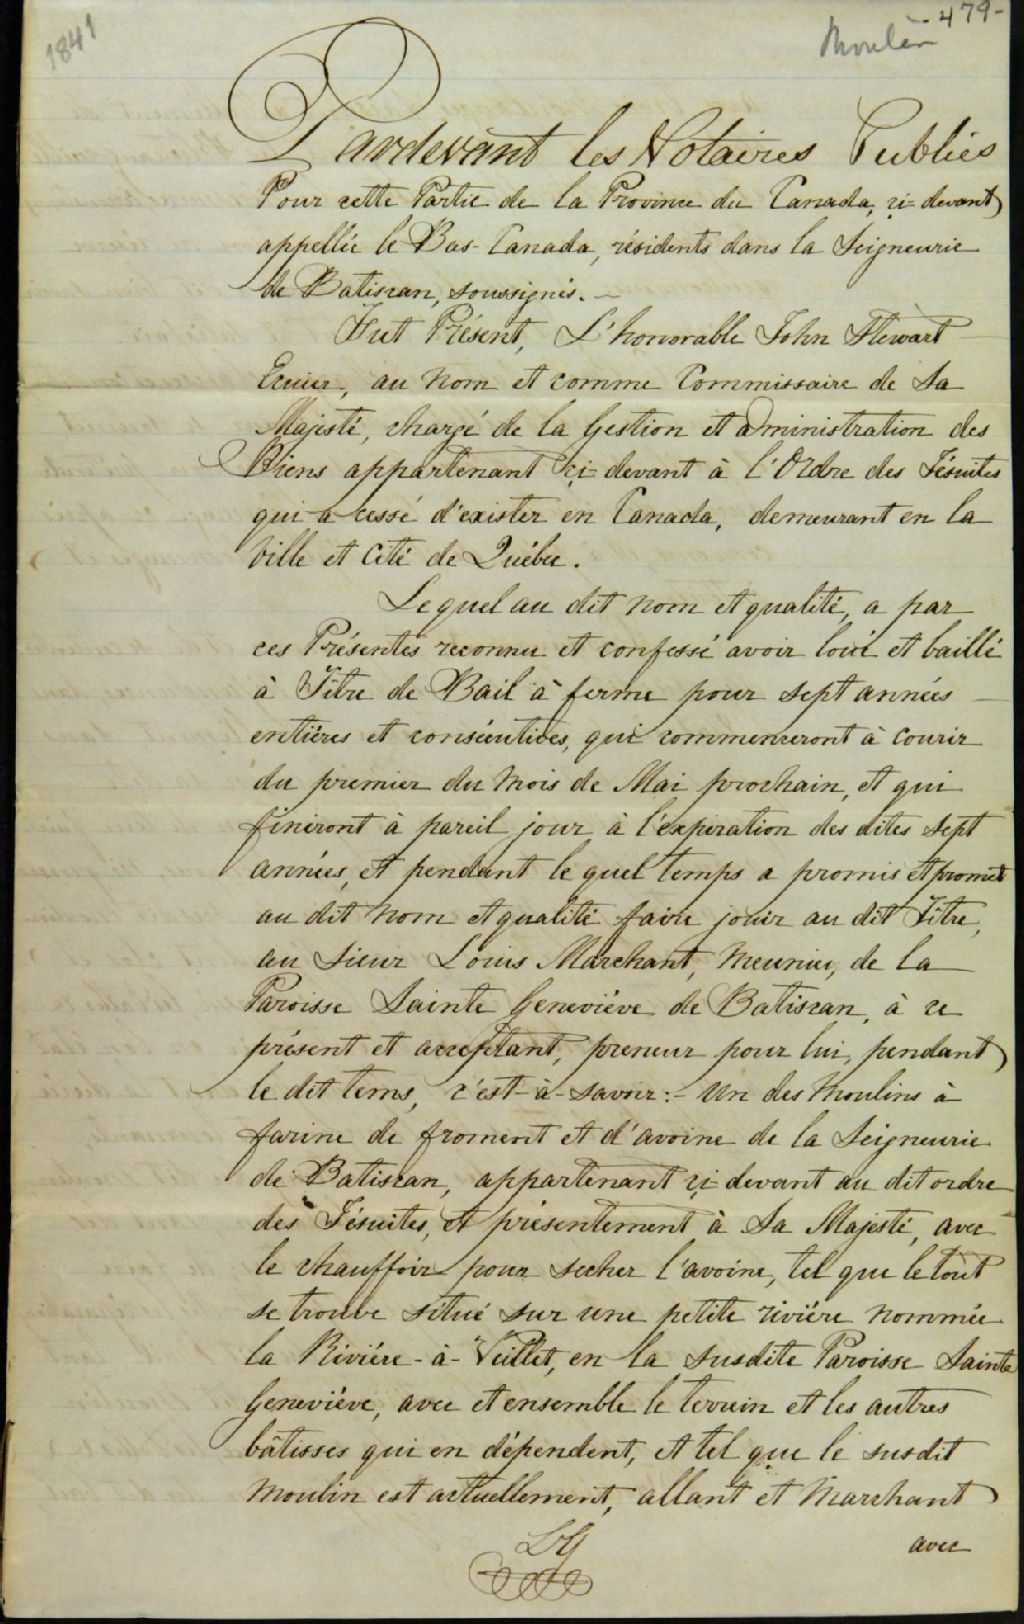 1841
Moulin 479-
Pardevant les Notaires Publics
Pour cette Partie de la Province du Canada, ci-devant
appellée le Bas-Canada, résidents dans la Seigneurie
de Batiscan, soussignés.
Fut Présent, L'honorable John Stewart
Ecuier, au nom et comme Commissaire de Sa
Majesté, chargé de la Gestion et administration des
Biens appartenant ci-devant à l'Ordre des Jésuites
qui a cessé d'exister en Canada, demeurant en la
Ville et Cité de Québec.
Lequel au dit nom et qualité, a par
ces Présentes reconnu et confessé avoir loué et baillé
à Titre de Bail à ferme pour sept années
entières et consécutives, qui commenceront à courir
du premier du mois de Mai prochain, et qui
finiront à pareil jour à l'expiration des dites sept
années, et pendant le quel temps a promis et promet
au dit nom et qualité faire jouir au dit Titre,
au Sieur Louis Marchant, Meunier, de la
Paroisse Sainte Geneviève de Batiscan, à ce
présent et acceptant, preneur pour lui, pendant
le dit tems, c'est-à-savoir:- Un des Moulins à
farine de froment et d'avoine de la Seigneurie
de Batiscan, appartenant ci-devant au dit ordre
des Jésuites, et présentement à Sa Majesté, avec
le chauffoir pour secher l'avoine, tel que le tout
se trouve situé sur une petite rivière nommée
la Rivière-à-Veillet, en la susdite Paroisse Sainte
Geneviève, avec et ensemble le terrein et les autres
bâtisses qui en dépendent, et tel que le susdit
Moulin est actuellement, allant et Marchant
LG
avec